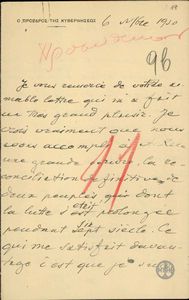 Ο ΠΡΟΕΔΡΟΣ ΤΗΣ ΚΥΒΕΡΝΗΣΕΩΣ
6 1930
96
Je vous remercie de votre
aimable lettre qui m'a fait
un très grand plaisir. Je
crois vraiment que nous
avons accompli
une grande la ré-
conciliation définitive de
deux peuples dont
la lutte s'était prolongée
pendant sept siècles. Ce
qui me satisfait davan-
tage c'est que je suis